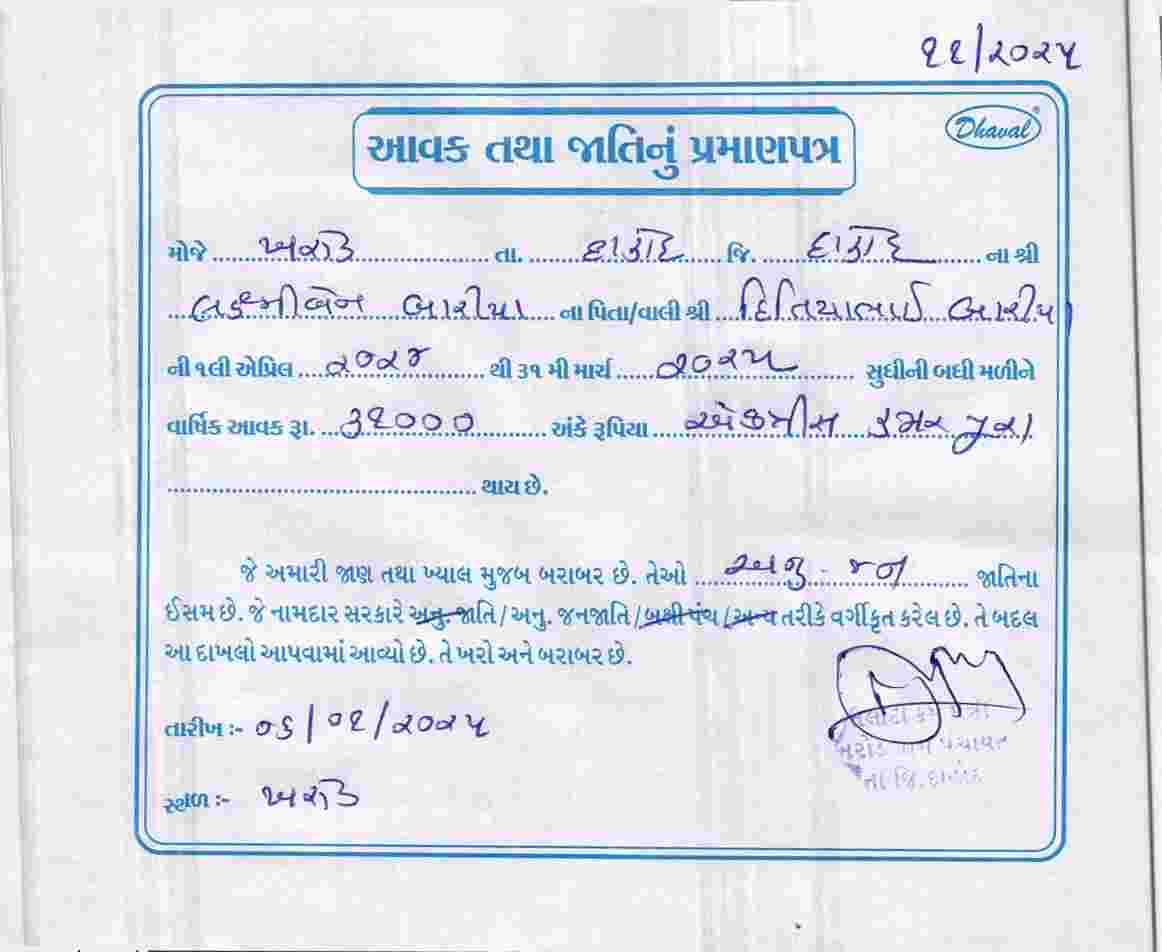 ૧૧/૨૦૨૫
Dhaval
આવક તથા જાતિનું પ્રમાણપત્ર
મોજે ખરોડ તા. દાહોદ જિ. દાહોદ ના શ્રી
લક્ષ્મીબેન બારીયા ના પિતા/વાલી શ્રી દિતિયાભાઈ બારીયા
ની ૧લી એપ્રિલ ૨૦૨૪ થી ૩૧ મી માર્ચ ૨૦૨૫ સુધીની બધી મળીને
વાર્ષિક આવક રૂા. ૩૧૦૦૦ અંકે રૂપિયા એકત્રીસ હજાર પુરા
થાય છે.
જે અમારી જાણ તથા ખ્યાલ મુજબ બરાબર છે. તેઓ અનુ. જન જાતિના
ઈસમ છે. જે નામદાર સરકારે અનુ. જાતિ/અનુ. જનજાતિ/બક્ષીપંચ/અન્ય તરીકે વર્ગીકૃત કરેલ છે. તે બદલ
આ દાખલો આપવામાં આવ્યો છે. તે ખરો અને બરાબર છે.
તારીખ :- ૦૬/૦૧/૨૦૨૫
તલાટી કમ મંત્રી
ખરોડ ગ્રામ પંચાયત
તા.જિ. દાહોદ
સ્થળ :- ખરોડ